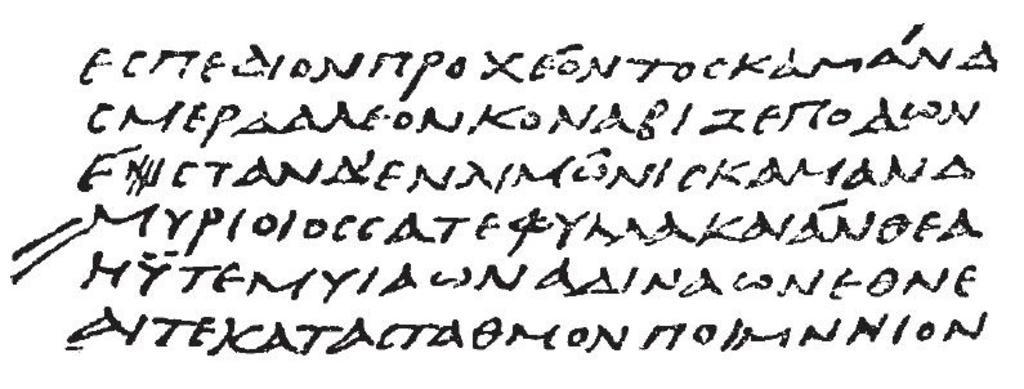 ΕСΠΕΔΙΟΝΠΡΟΧΕΌΝΤΟСΚΑΜΆΝΔ
СΜΕΡΔΑΛΕΟΝΚΟΝΑΒΙΖΕΠΟΔΩΝ
ΕСΤΑΝΔ'ΕΝΛΙΜΩΝΙСΚΑΜΑΝΔ
ΜΥΡΙΟΙΟССΑΤΕΦΥΛΛΑΚΑΙΆΝΘΕΑ
ΗΫΤΕΜΥΙΑΩΝΑΔΙΝΑΩΝΕΘΝΕ
ΑΙΤΕΚΑΤΑСΤΑΘΜΟΝΠΟΙΜΝΗΙΟΝ